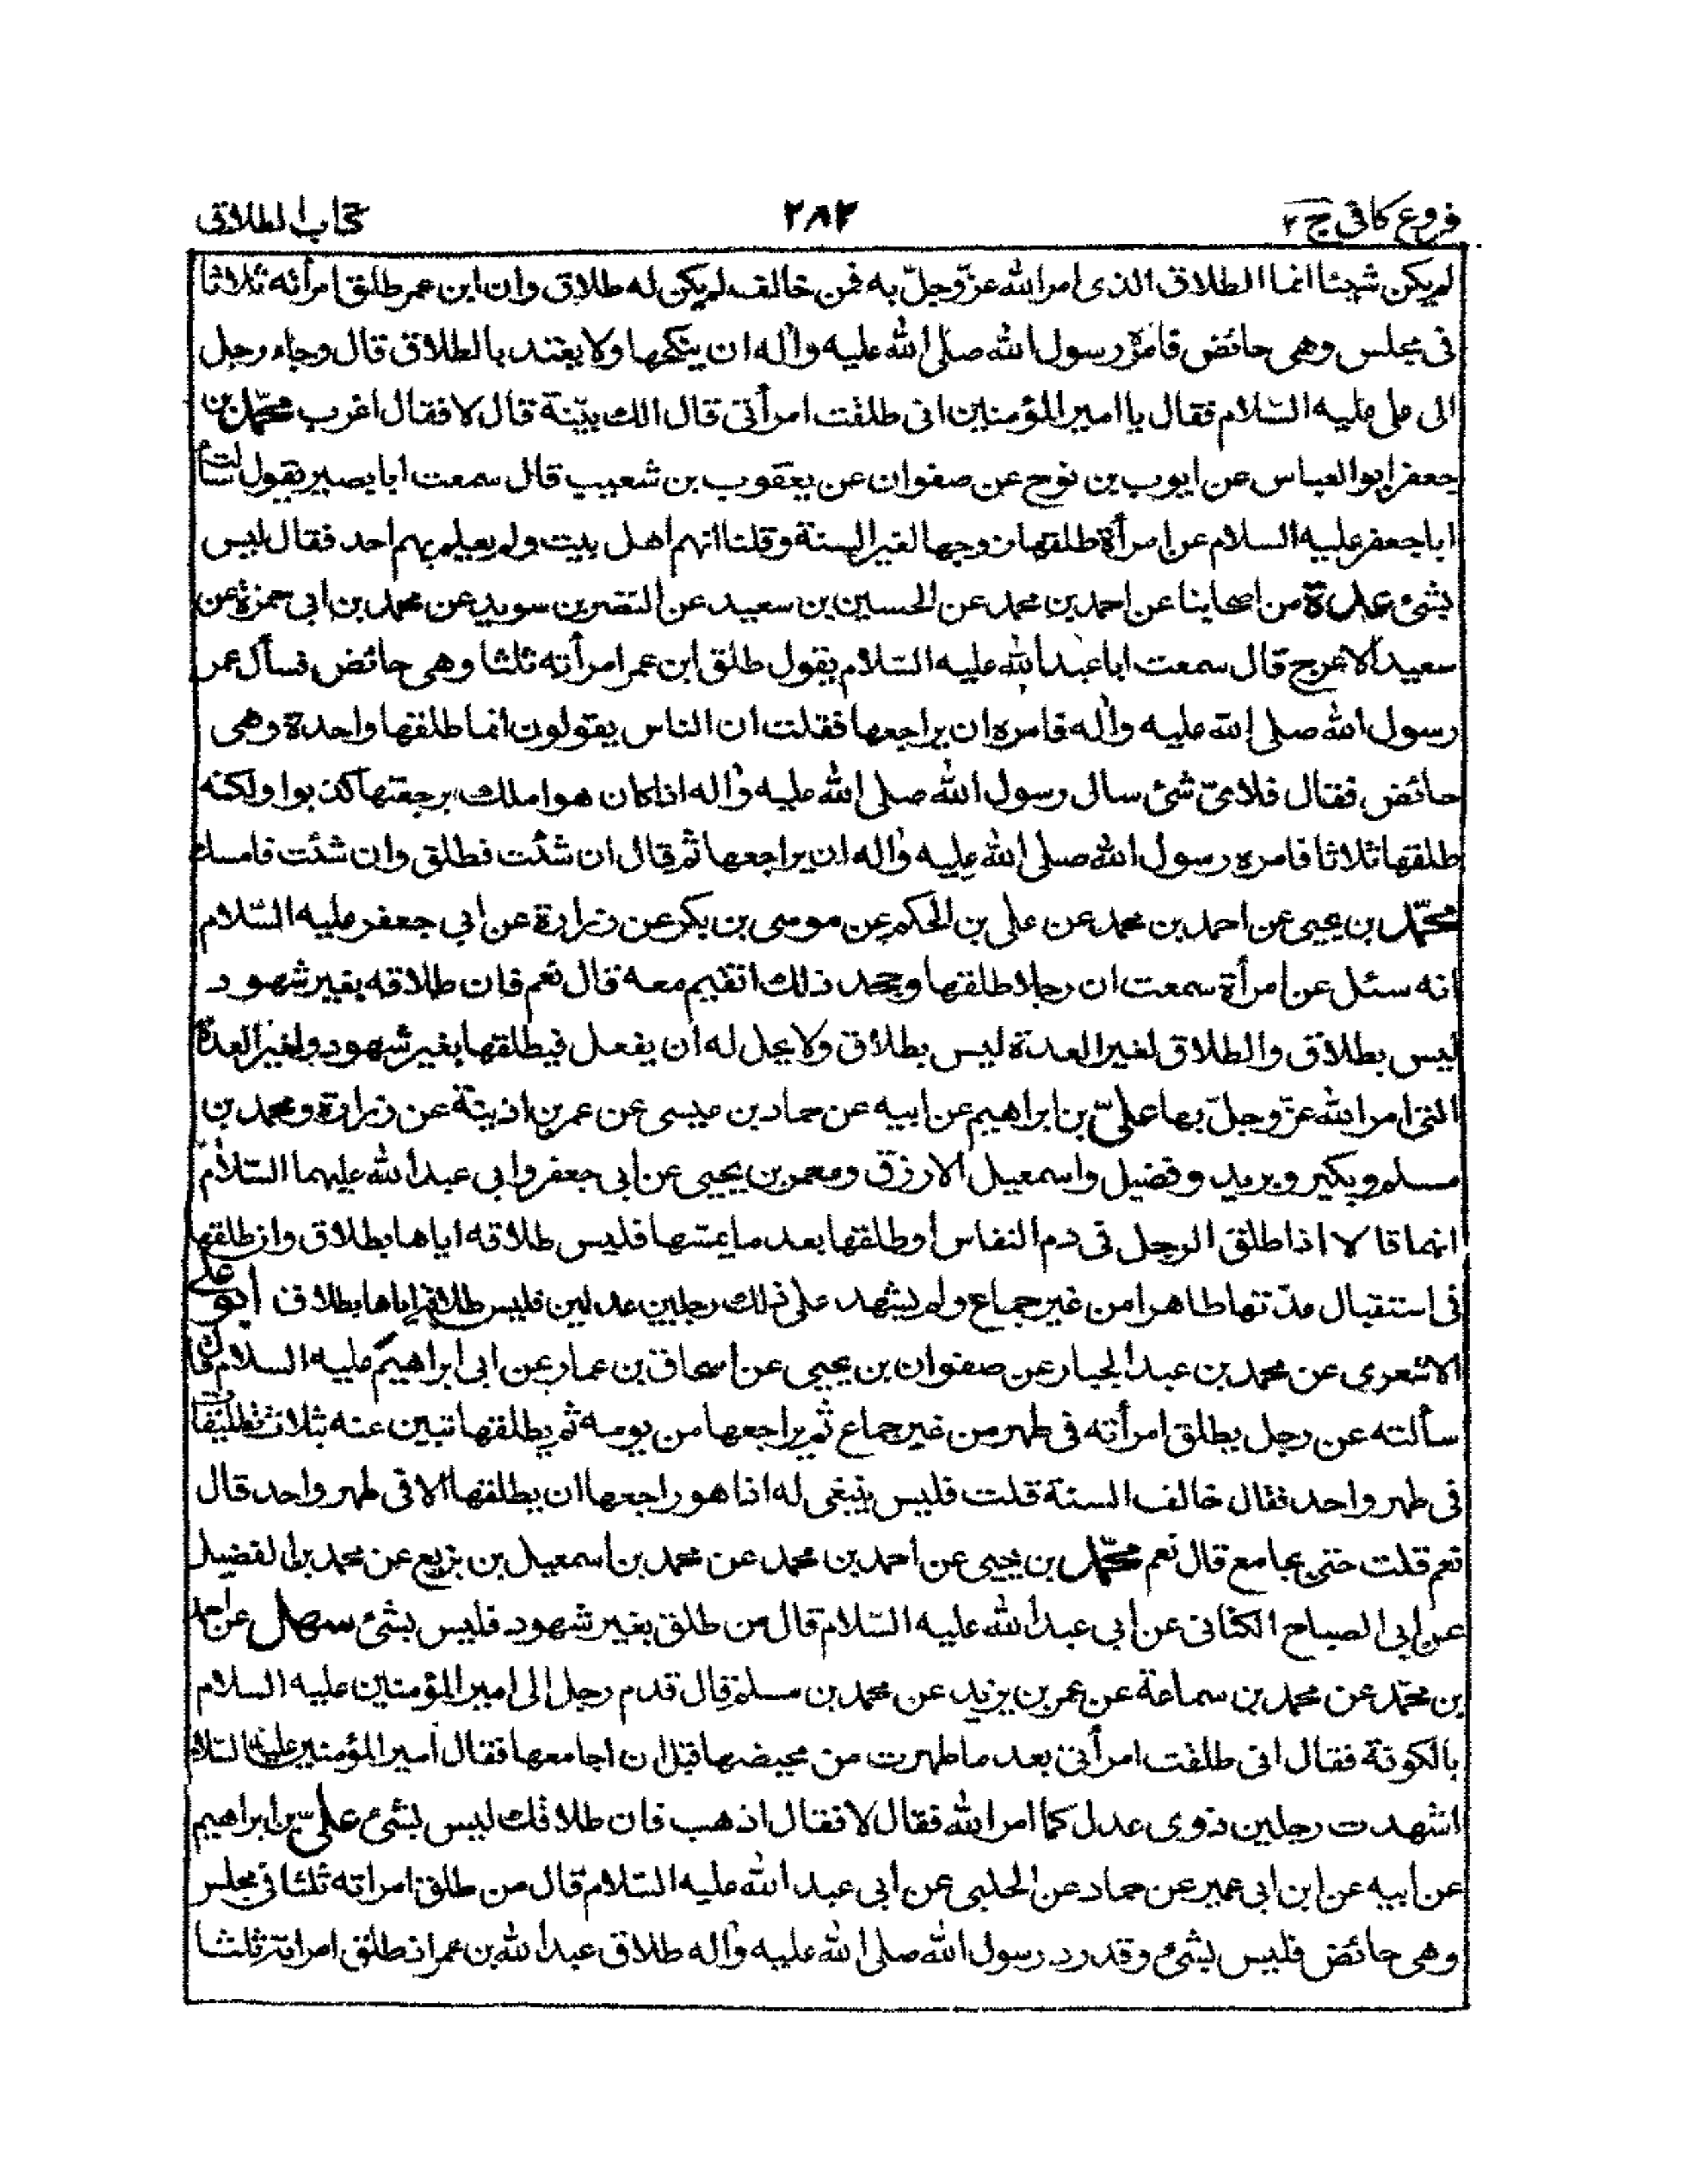 فروع کافی ج ۲
۲۸۲
کتاب الطلاق
لم یکن شیئا انما الطلاق الذی امر الله عزّ وجلّ به فمن خالف لم یکن له طلاق وان ابن عمر طلق امرأته ثلاثا
فی مجلس وهی حائض فامره رسول الله صلی الله علیه واله ان ینکحها ولا یعتد بالطلاق قال وجاء رجل
الی علی علیه السّلام فقال یا امیر المؤمنین انی طلقت امرأتی قال الك بیّنة قال لا فقال اغرب محمّد بن
جعفر ابو العباس عن ایوب بن نوح عن صفوان عن یعقوب بن شعیب قال سمعت ابا بصیر یقول سألت
ابا جعفر علیه السلام عن امرأة طلقها زوجها لغیر السنة وقلنا انهم اهل بیت ولم یعلم بهم احد فقال لیس
بشئ عدة من اصحابنا عن احمد بن محمد عن الحسین بن سعید عن النضر بن سوید عن محمد بن ابی حمزة عن
سعید الاعرج قال سمعت ابا عبد الله علیه السّلام یقول طلق ابن عمر امرأته ثلثا وهی حائض فسأل عمر
رسول الله صلی الله علیه واله فامره ان یراجعها فقلت ان الناس یقولون انما طلقها واحدة وهی
حائض فقال فلایّ شئ سال رسول الله صلی الله علیه واله اذا کان هو املك برجعتها کذبوا ولکنه
طلقها ثلاثا فامره رسول الله صلی الله علیه واله ان یراجعها ثم قال ان شئت فطلق وان شئت فامسك
محمّد بن یحیی عن احمد بن محمد عن علی بن الحکم عن موسی بن بکر عن زرارة عن ابی جعفر علیه السّلام
انه سئل عن امرأة سمعت ان رجلا طلقها وجحد ذلك اتقیم معه قال نعم فان طلاقه بغیر شهود
لیس بطلاق والطلاق لغیر العدة لیس بطلاق ولا یحل له ان یفعل فیطلقها بغیر شهود ولغیر العدة
التی امر الله عزّ وجلّ بها علیّ بن ابراهیم عن ابیه عن حماد بن عیسی عن عمر بن اذینة عن زرارة ومحمد بن
مسلم وبکیر وبرید وفضیل واسمعیل الازرق ومعمر بن یحیی عن ابی جعفر وابی عبد الله علیهما السّلام
انهما قالا اذا طلق الرجل فی دم النفاس او طلقها بعد ما یمسّها فلیس طلاقه ایاها بطلاق وان طلقها
فی استقبال عدّتها طاهرا من غیر جماع ولم یشهد علی ذلك رجلین عدلین فلیس طلاقه ایاها بطلاق ابو علی
الاشعری عن محمد بن عبد الجبار عن صفوان بن یحیی عن اسحاق بن عمار عن ابی ابراهیم علیه السلام قال
سألته عن رجل یطلق امرأته فی طهر من غیر جماع ثم یراجعها من یومه ثم یطلقها تبین عنه بثلاث تطلیقات
فی طهر واحد فقال خالف السنة قلت فلیس ینبغی له اذا هو راجعها ان یطلقها الا فی طهر واحد قال
نعم قلت حتی یجامع قال نعم محمّد بن یحیی عن احمد بن محمد عن محمد بن اسمعیل بن بزیع عن محمد بن الفضیل
عن ابی الصباح الکنانی عن ابی عبد الله علیه السّلام قال من طلق بغیر شهود فلیس بشئ سهل عن احمد
بن محمّد عن محمد بن سماعة عن عمر بن یزید عن محمد بن مسلم قال قدم رجل الی امیر المؤمنین علیه السلام
بالکوفة فقال انی طلقت امرأتی بعد ما طهرت من محیضها قبل ان اجامعها فقال امیر المؤمنین علیه السّلام
اشهدت رجلین ذوی عدل کما امر الله فقال لا فقال اذهب فان طلاقك لیس بشئ علیّ بن ابراهیم
عن ابیه عن ابن ابی عمیر عن حماد عن الحلبی عن ابی عبد الله علیه السّلام قال من طلق امراته ثلثا فی مجلس
وهی حائض فلیس بشئ وقد رد رسول الله صلی الله علیه واله طلاق عبد الله بن عمر اذ طلق امراته ثلثا